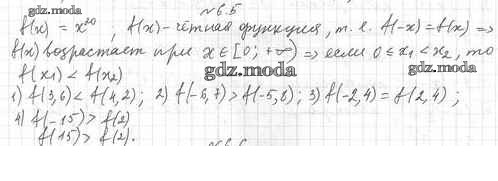 gdz.moda
№ 6.5
f(x) = x²⁰, f(x) - чётная функция, т. е. f(-x) = f(x) ⇒
f(x) возрастает при x ∈ [0; +∞) ⇒ если 0 ≤ x₁ < x₂, то
f(x₁) < f(x₂)
gdz.moda
1) f(3,6) < f(4,2); 2) f(-6,7) > f(-5,8); 3) f(-2,4) = f(2,4);
4) f(-15) > f(2)
f(15) > f(2).
gdz.moda